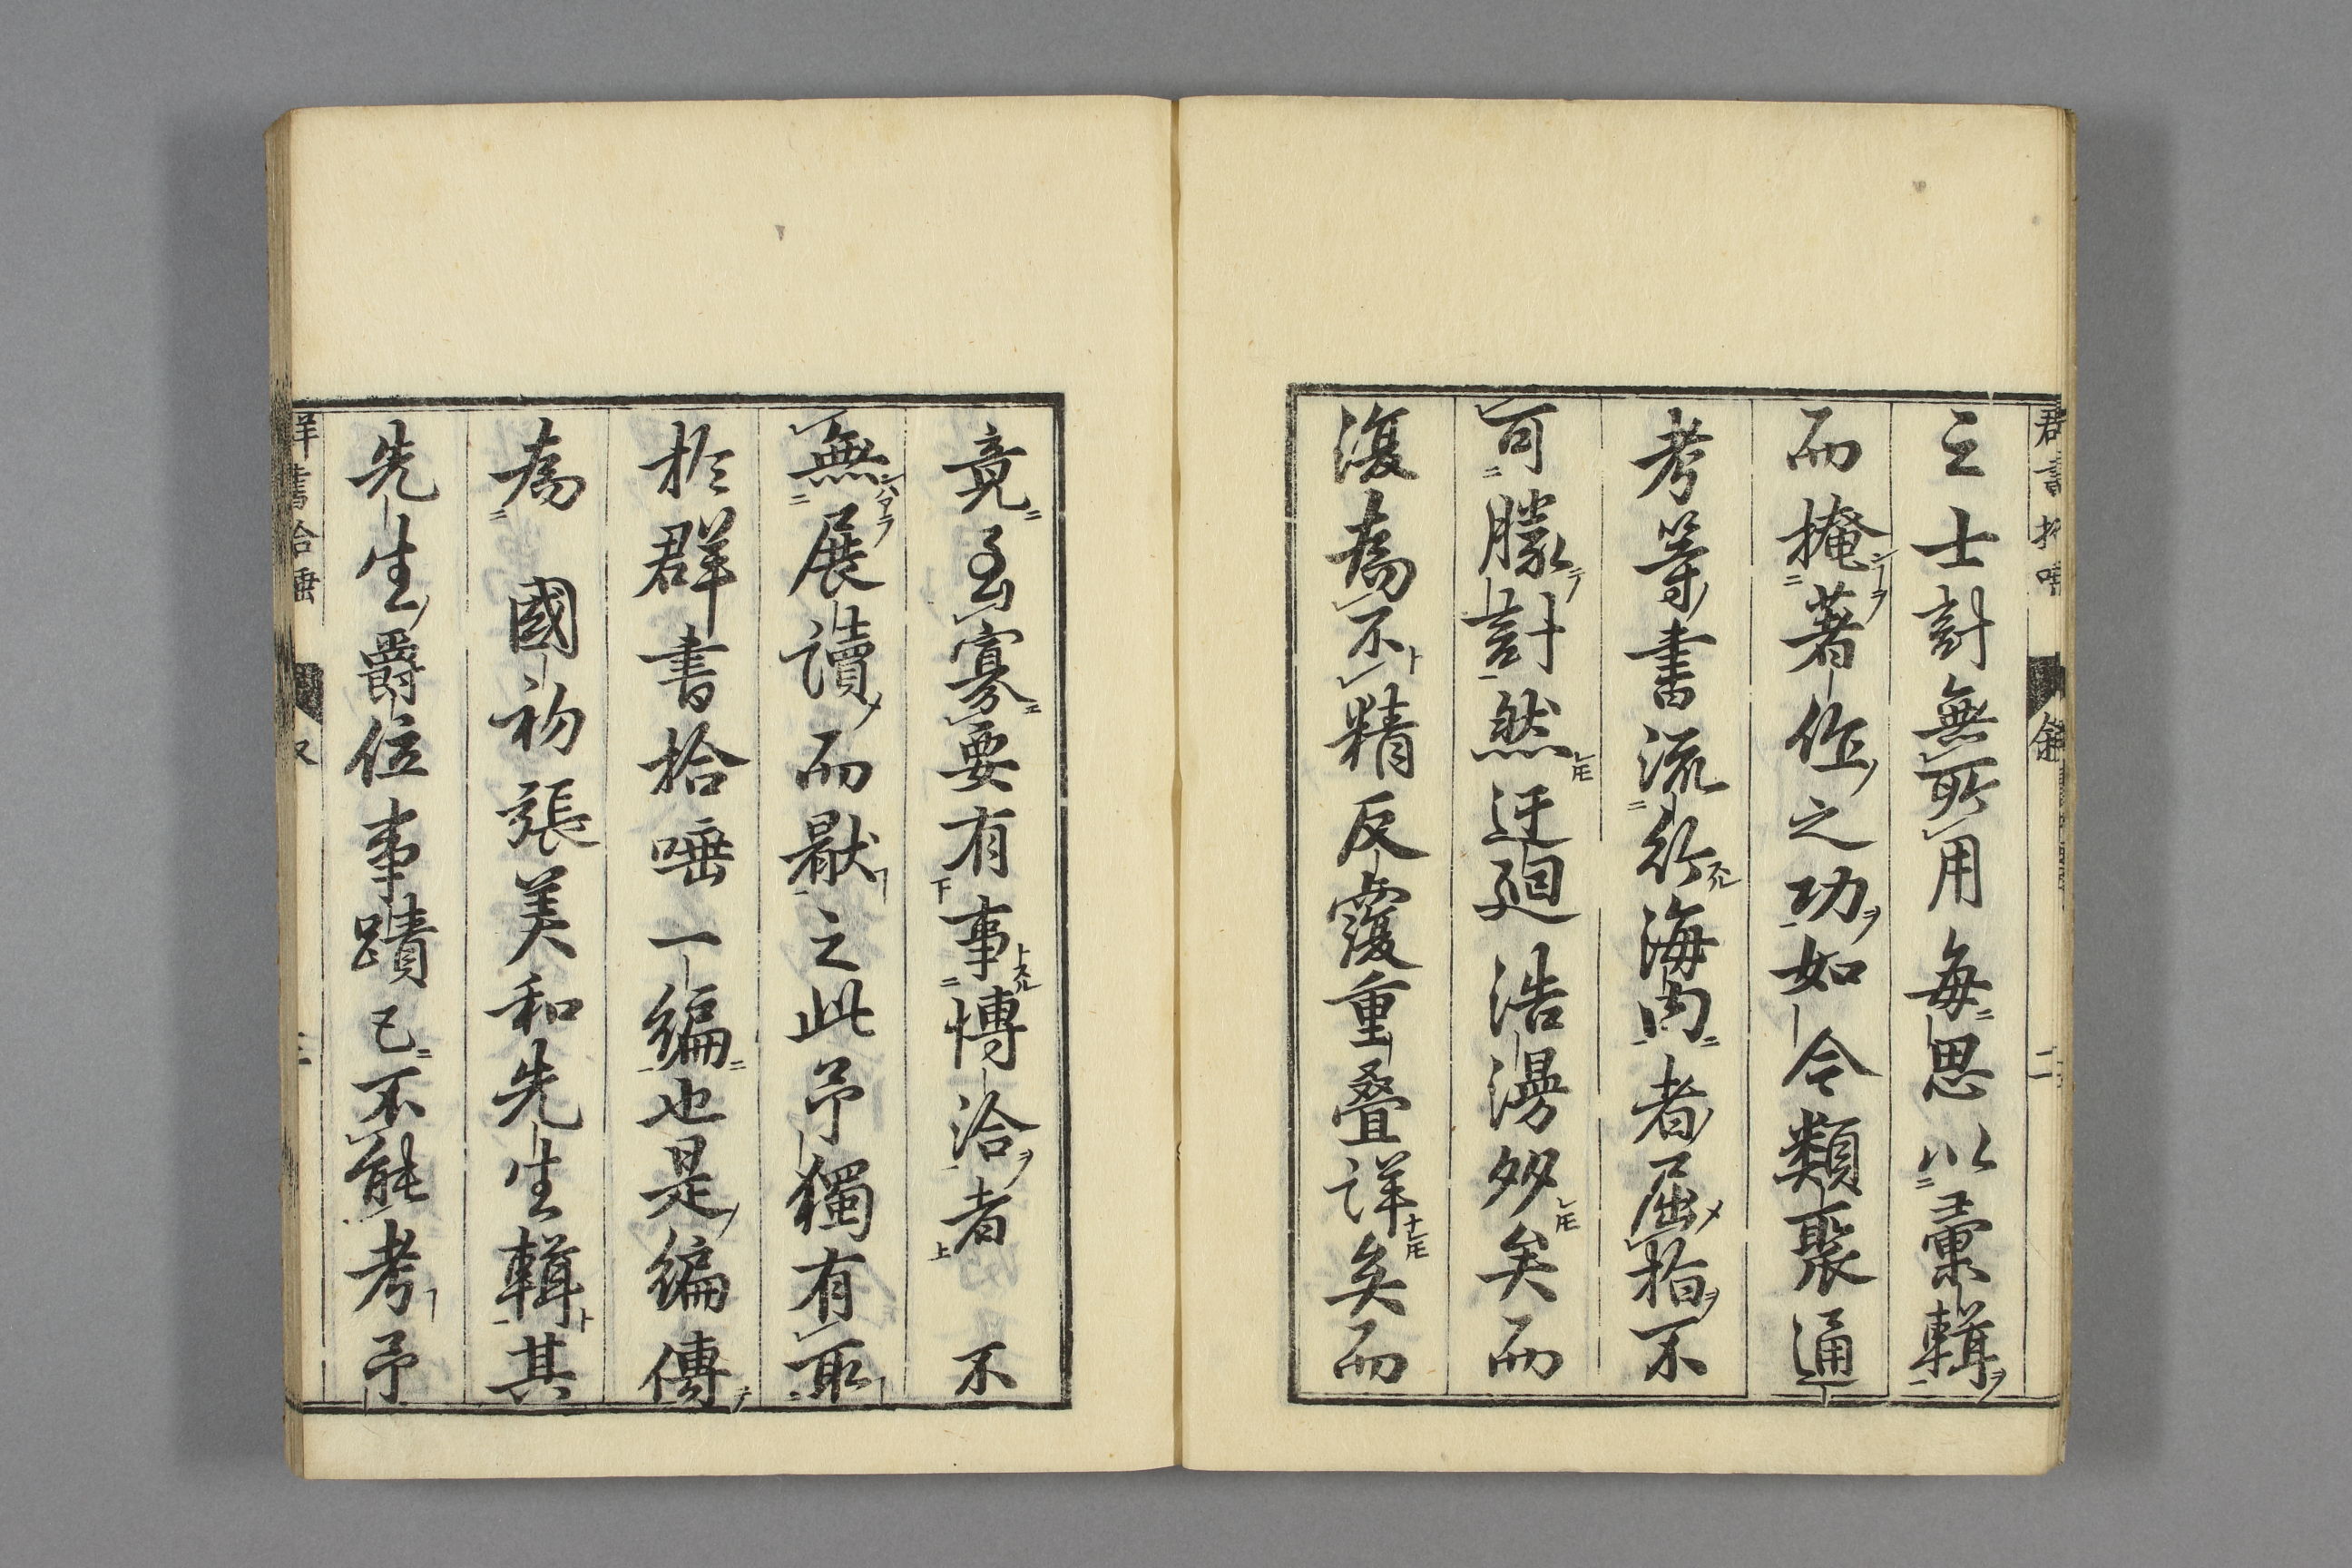 之士計無所用每思以彙輯
而掩著作之功如令類聚通
考等書流行海内者屈指不
可勝計然迂廻浩漫夥矣而
復為不精反覆重疊詳矣而
竟至寡要有事博洽者不
無展讀而厭之此予獨有取
於群書拾唾一編也是編傳
為 國初張美和先生輯其
先生爵位事蹟已不能考予